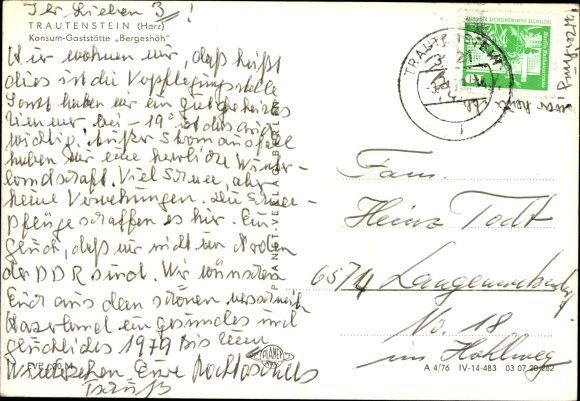 Ihr Lieben 3!
TRAUTENSTEIN (Harz)
Konsum-Gaststätte „Bergeshöh"
Hier wohnen wir, daß heißt
dies ist die Verpflegungsstelle
Sonst haben wir ein gutgeheiztes
Zimmer, bei -19° ist das auch
wichtig! Außer Stromausfall
haben wir eine herrliche Winter-
landschaft. Viel Schnee, aber
keine Verwehungen. Die Schnee-
pflüge schaffen es hier. Ein
Glück, daß wir nicht im Norden
der DDR sind. Wir wünschen
Euch aus dem schönen verschneiten
Harzerland ein gesundes und
glückliches 1979 Bis zum
Wiedersehen Eure
EVP
PLANET-VERLAG BERLIN
PLANET
TRAUTENSTEIN
Fam.
Heinz Todt
6574 Langenwetzendorf
No. 18
im Hohlweg
A 4/76 IV-14-483 03 07 20 282